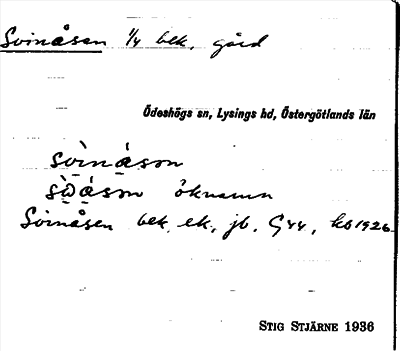 Svinåsen 1/4 bek. gård
Ödeshögs sn, Lysings hd, Östergötlands län
svìnásơn
sẁásơn öknamn
Svinåsen bek. ek., jb. G44, kb 1926
STIG STJÄRNE 1936